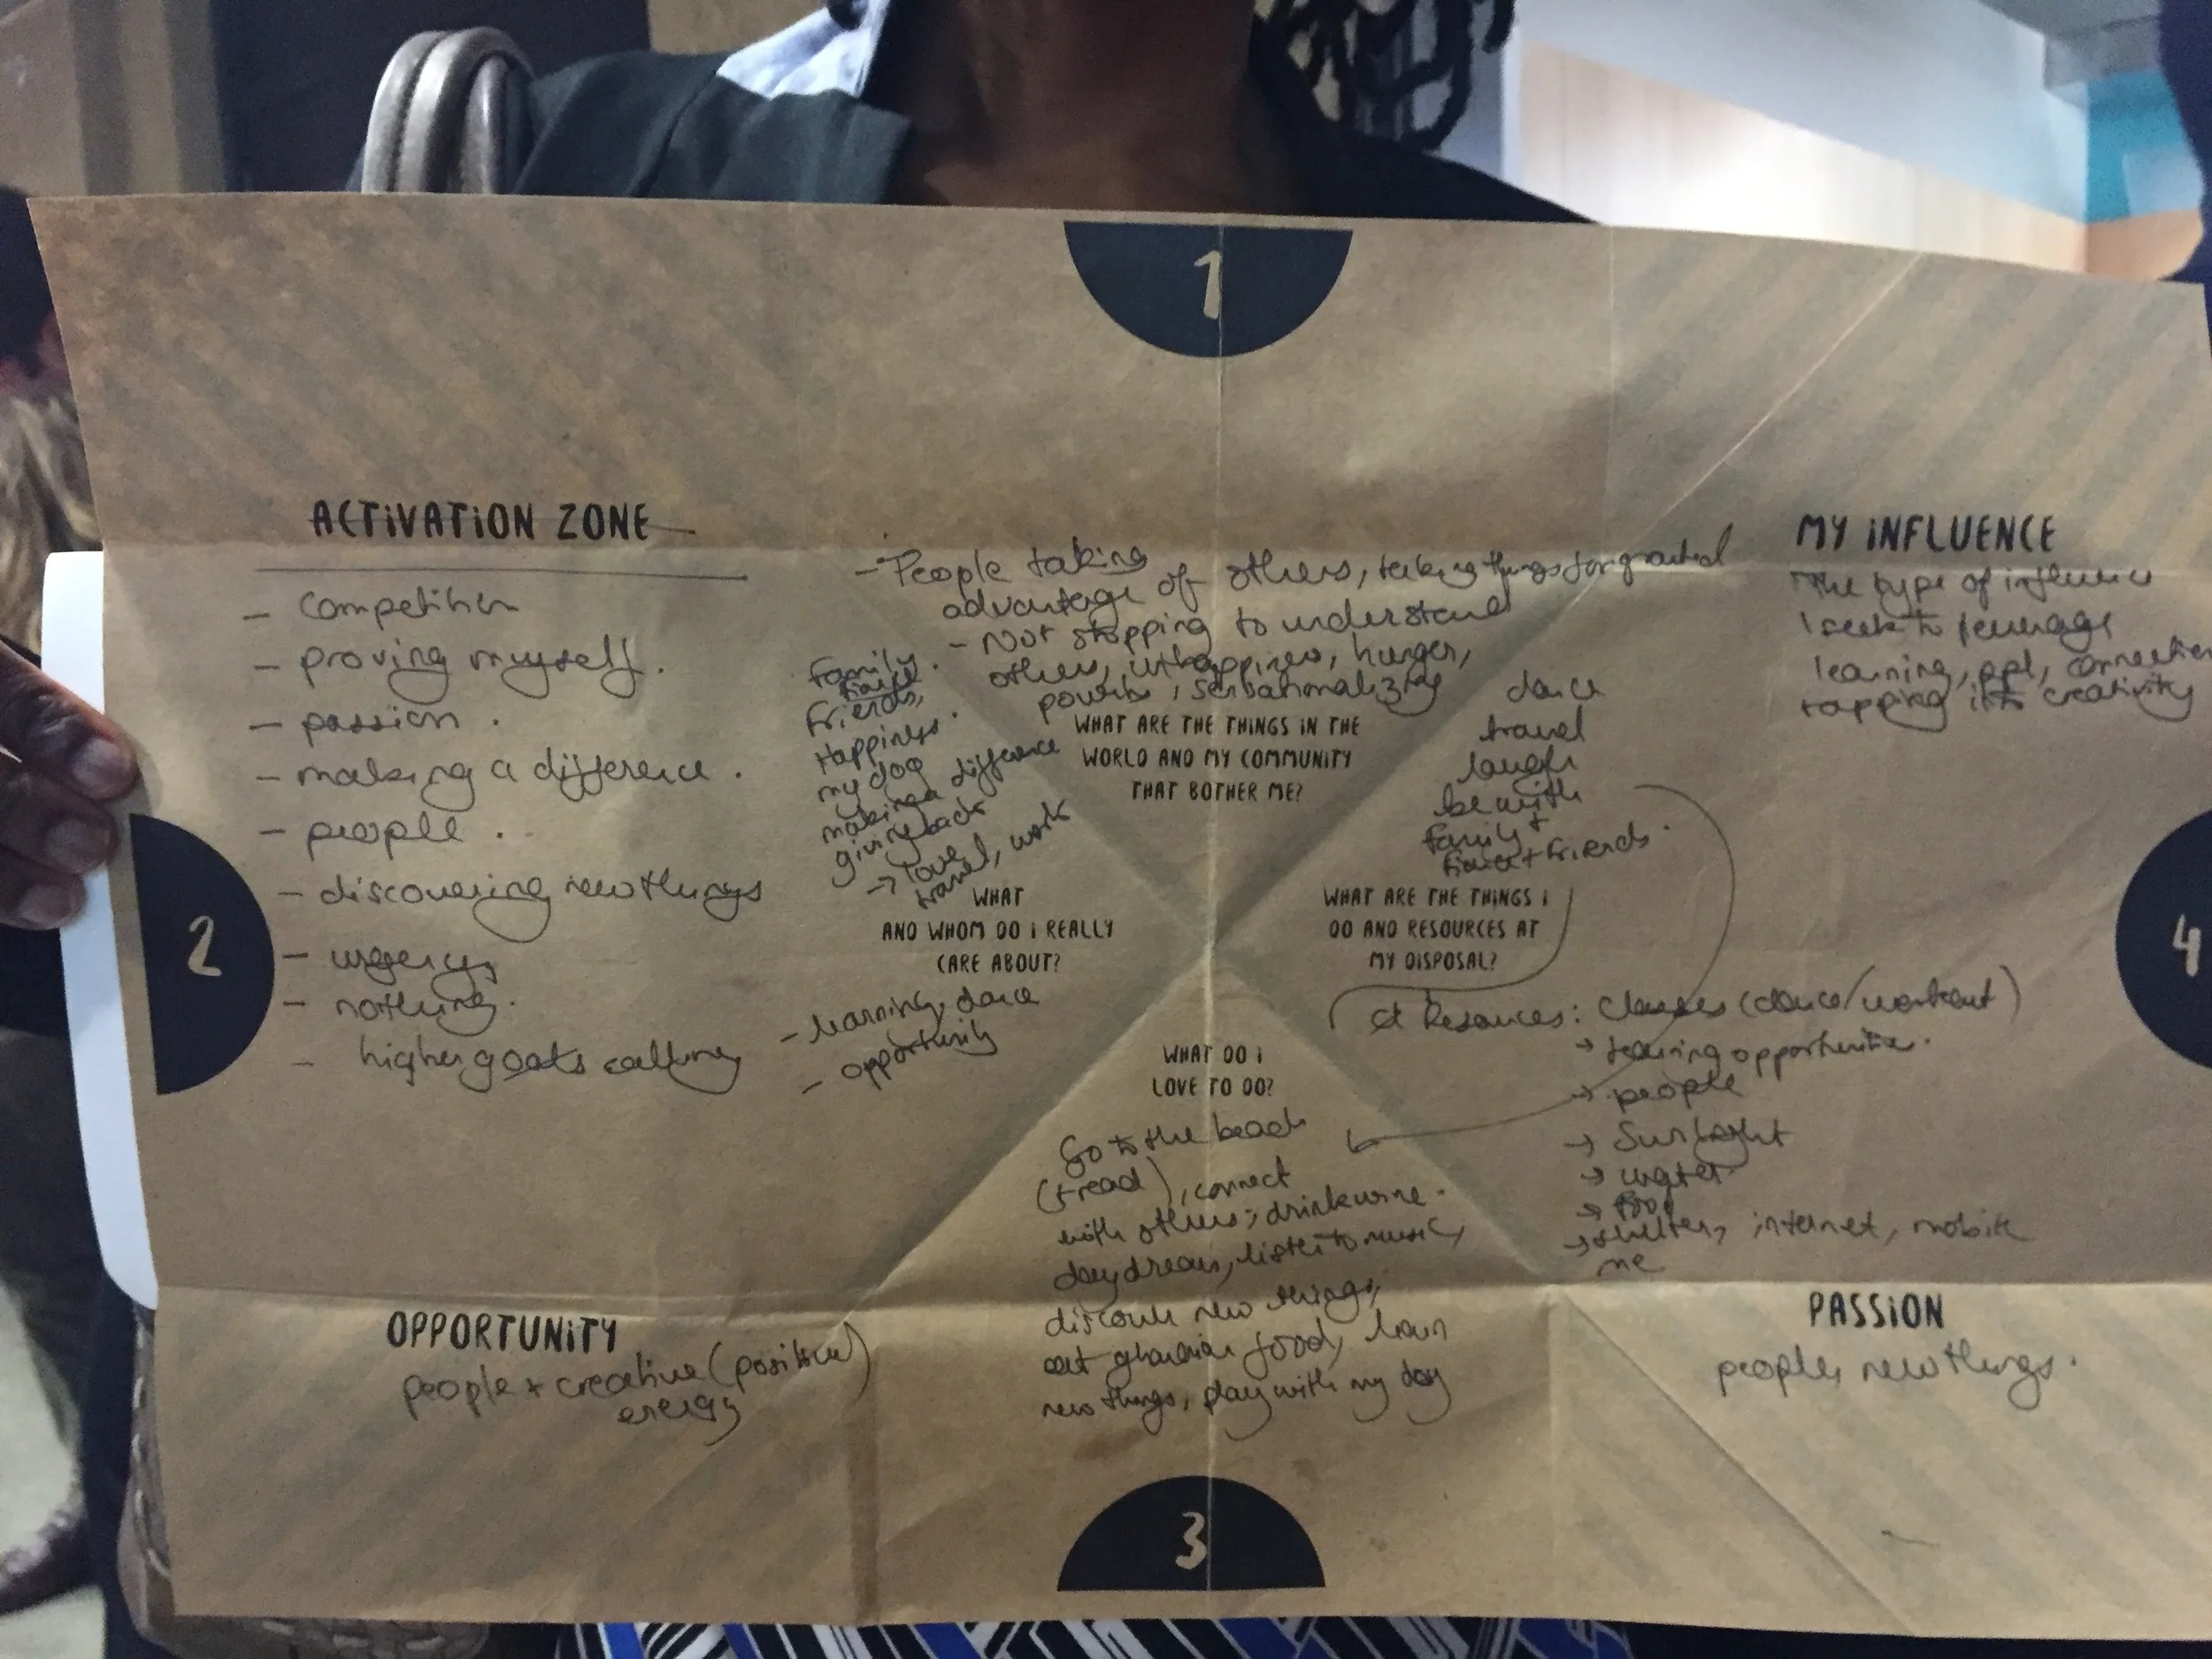 1
ACTIVATION ZONE
- Competition
- proving myself.
- passion.
- making a difference.
- people.
- discovering new things
- urgency
- nothing.
- higher goals calling
2
- People taking
advantage of others, taking things for granted
- Not stopping to understand
others, unhappiness, hunger,
poverty, sensationalizing
WHAT ARE THE THINGS IN THE
WORLD AND MY COMMUNITY
THAT BOTHER ME?
Family.
Friends,
Happiness.
my dog
making a difference
giving back
→ love
travel, work
WHAT
AND WHOM DO I REALLY
CARE ABOUT?
- learning, dance
- opportunity
MY INFLUENCE
The type of influence
I seek to leverage
learning, ppl, connection
tapping into creativity
4
dance
travel
laugh
be with
family +
+ friends.
WHAT ARE THE THINGS I
DO AND RESOURCES AT
MY DISPOSAL?
Resources: Classes (dance/workout)
→ learning opportunities.
→ people
→ Sunlight
→ water
→ food
→ shelter, internet, mobile
me
WHAT DO I
LOVE TO DO?
Go to the beach
(+ read), connect
with others, drink wine.
day dream, listen to music,
discover new things,
eat ghanaian food, learn
new things, play with my dog
3
OPPORTUNITY
people + creative (positive)
energy
PASSION
people, new things.